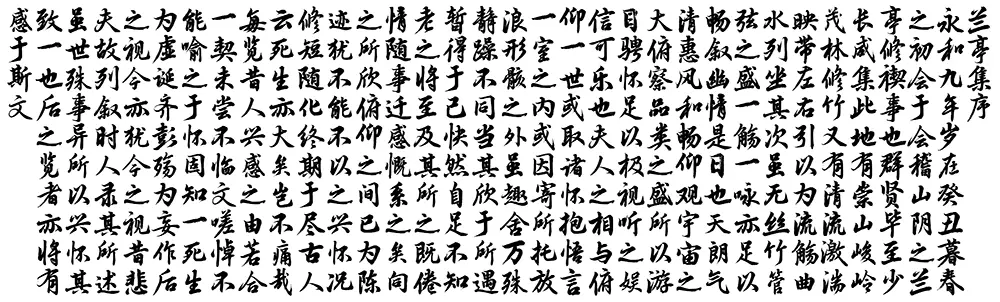 兰亭集序
永和九年岁在癸丑暮春
之初会于会稽山阴之兰
亭修禊事也群贤毕至少
长咸集此地有崇山峻岭
茂林修竹又有清流激湍
映带左右引以为流觞曲
水列坐其次虽无丝竹管
弦之盛一觞一咏亦足以
畅叙幽情是日也天朗气
清惠风和畅仰观宇宙之
大俯察品类之盛所以游
目骋怀足以极视听之娱
信可乐也夫人之相与俯
仰一世或取诸怀抱悟言
一室之内或因寄所托放
浪形骸之外虽趣舍万殊
静躁不同当其欣于所遇
暂得于己快然自足不知
老之将至及其所之既倦
情随事迁感慨系之矣向
之所欣俯仰之间已为陈
迹犹不能不以之兴怀况
修短随化终期于尽古人
云死生亦大矣岂不痛哉
每览昔人兴感之由若合
一契未尝不临文嗟悼不
能喻之于怀固知一死生
为虚诞齐彭殇为妄作后
之视今亦犹今之视昔悲
夫故列叙时人录其所述
虽世殊事异所以兴怀其
致一也后之览者亦将有
感于斯文